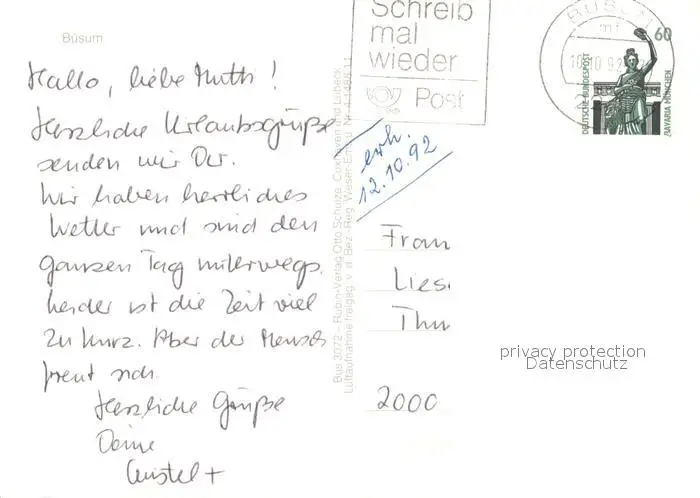 Büsum
Schreib
mal
wieder
Post
BÜSUM
60
DEUTSCHE BUNDESPOST
BAVARIA MÜNCHEN
Hallo, liebe Mutti!
Herzliche Urlaubsgrüße
senden wir Dir.
Wir haben herrliches
Wetter und sind den
ganzen Tag unterwegs.
Leider ist die Zeit viel
zu kurz. Aber der Mensch
freut sich.
Herzliche Grüße
Deine
Christel +
erh.
12.10.92
Bus 3072 – Rubin-Verlag Otto Schulze, Cuxhaven und Lübeck
Luftaufnahme freigeg. v. d. Bez. Reg. Weser-Ems u. Nr.
Frau
Lies
Thu
2000
privacy protection
Datenschutz